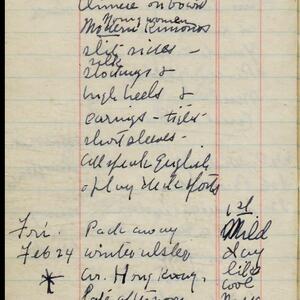 Chinese on board
Young women
Modern Kimonos
slit sides -
silk
stockings &
high heels &
earrings - tight
short sleeves -
all speak English
& play deck sports
1st
Fri. Pack away Mild
Feb 24 winter ulster day
ar. Hong Kong. like
Late afternoon cool